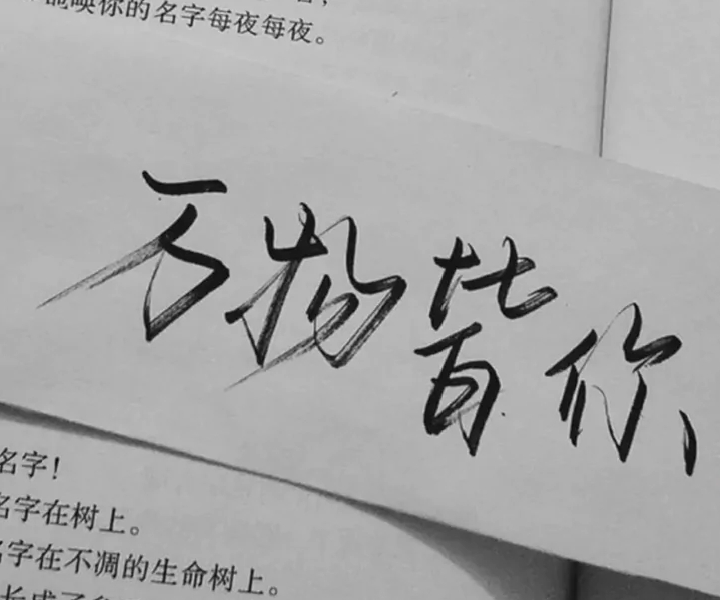 唤你的名字每夜每夜。
万物皆你
名字！
名字在树上。
名字在不凋的生命树上。